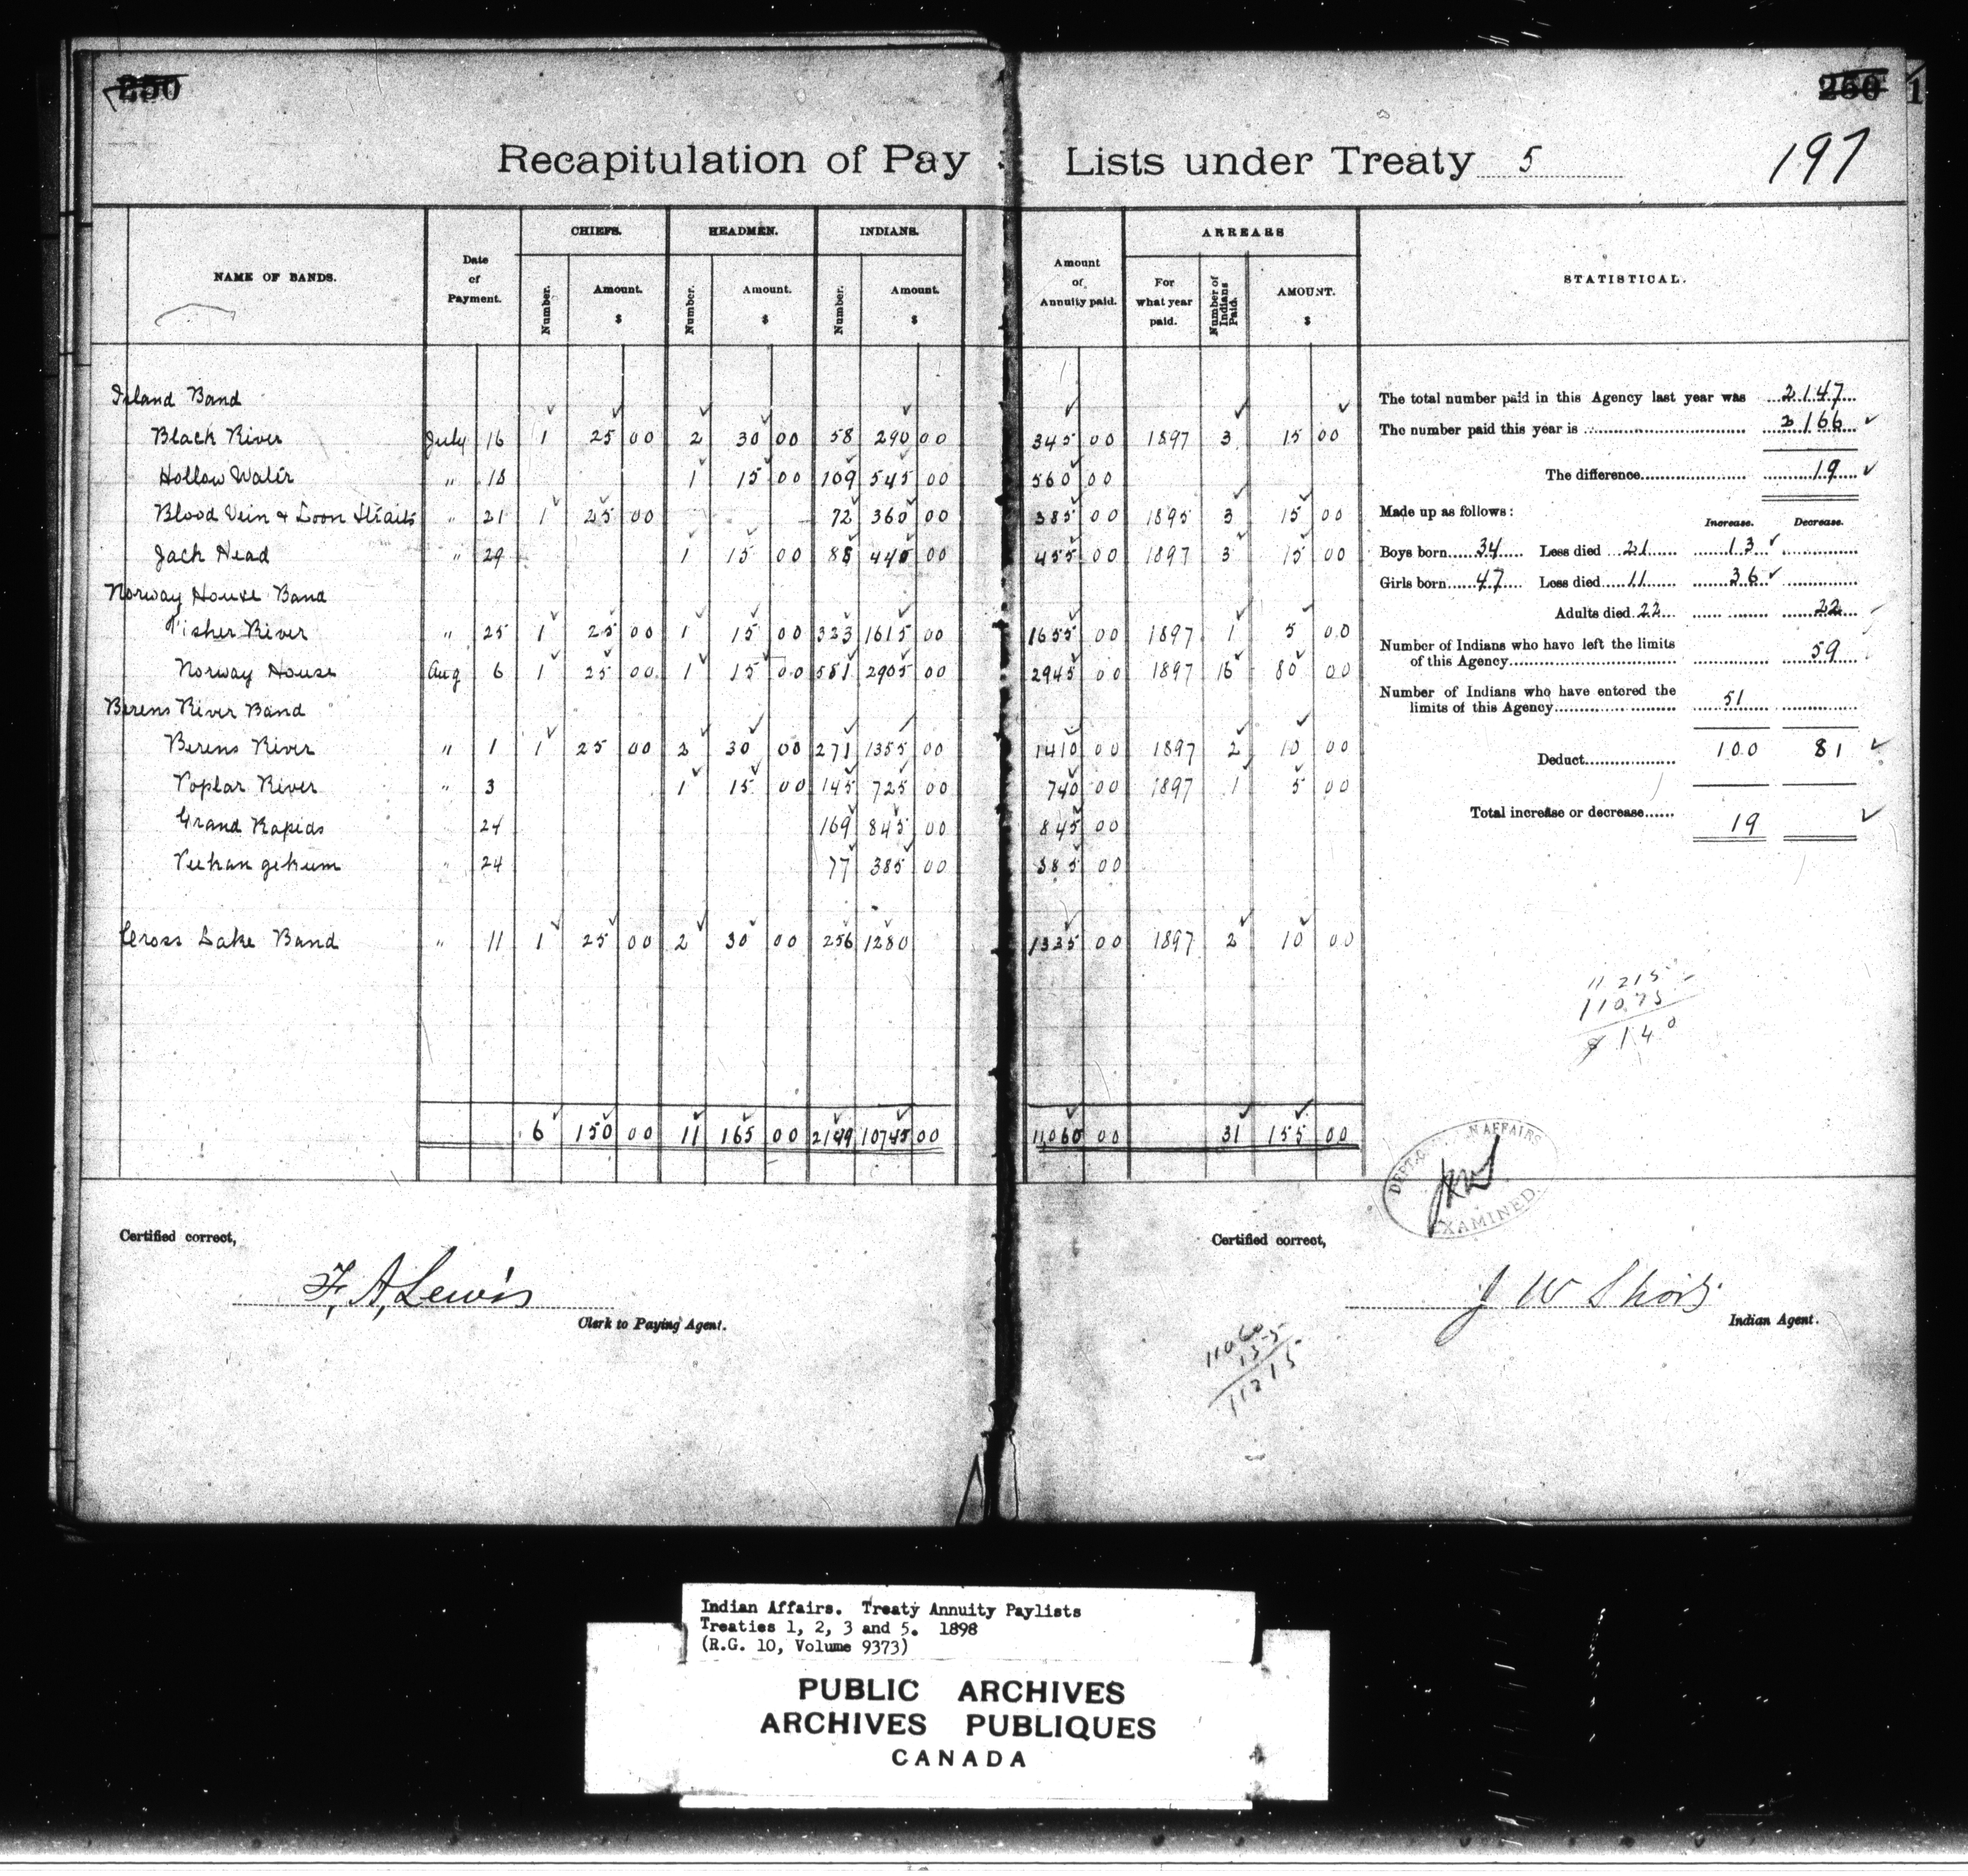 250 250 1
Recapitulation of Pay Lists under Treaty 5 197
NAME OF BANDS. Date of Payment. CHIEFS. HEADMEN. INDIANS. Amount of Annuity paid. ARREARS STATISTICAL.
Number. Amount. $ Number. Amount. $ Number. Amount. $ For what year paid. Number of Indians Paid. AMOUNT. $
Island Band
Black River July 16 1 25 00 2 30 00 58 290 00 345 00 1897 3 15 00
Hollow Water " 18 1 15 00 109 545 00 560 00
Blood Vein & Loon Straits " 21 1 25 00 72 360 00 385 00 1895 3 15 00
Jack Head " 29 1 15 00 88 440 00 455 00 1897 3 15 00
Norway House Band
Fisher River " 25 1 25 00 1 15 00 323 1615 00 1655 00 1897 1 5 00
Norway House Aug 6 1 25 00 1 15 00 581 2905 00 2945 00 1897 16 80 00
Berens River Band
Berens River " 1 1 25 00 2 30 00 271 1355 00 1410 00 1897 2 10 00
Poplar River " 3 1 15 00 145 725 00 740 00 1897 1 5 00
Grand Rapids 24 169 845 00 845 00
Peekangekum " 24 77 385 00 385 00
Cross Lake Band " 11 1 25 00 2 30 00 256 1280 1335 00 1897 2 10 00
6 150 00 11 165 00 2149 10745 00 11,060 00 31 155 00
The total number paid in this Agency last year was 2147
The number paid this year is 2166
The difference 19
Made up as follows: Increase. Decrease.
Boys born 34 Less died 21 13
Girls born 47 Less died 11 36
Adults died 22 22
Number of Indians who have left the limits
of this Agency 59
Number of Indians who have entered the
limits of this Agency 51
Deduct 100 81
Total increase or decrease 19
11215
11075
$140
DEPT. AFFAIRS
EXAMINED
Certified correct,
F. A. Lewis
Clerk to Paying Agent.
Certified correct,
J W Short
Indian Agent.
11060
155
11215
Indian Affairs. Treaty Annuity Paylists
Treaties 1, 2, 3 and 5. 1898
(R.G. 10, Volume 9373)
PUBLIC ARCHIVES
ARCHIVES PUBLIQUES
CANADA